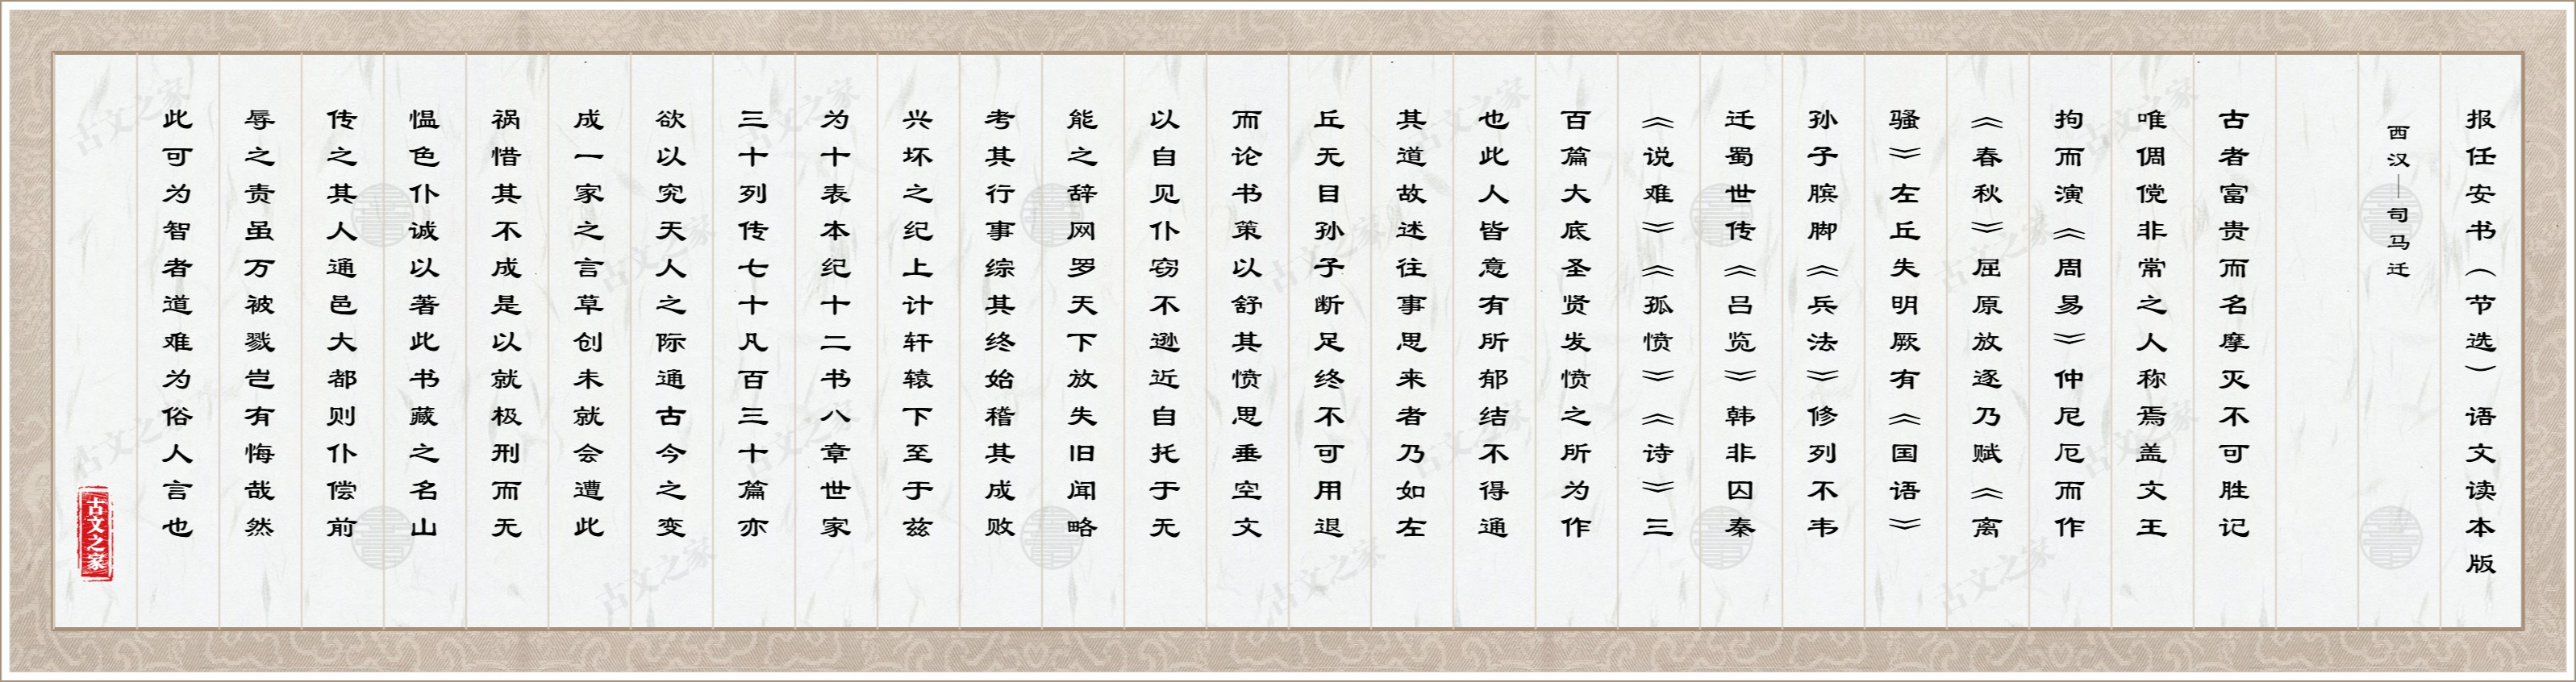 报任安书（节选）语文读本版
西汉—司马迁
古者富贵而名摩灭不可胜记
唯倜傥非常之人称焉盖文王
拘而演《周易》仲尼厄而作
《春秋》屈原放逐乃赋《离
骚》左丘失明厥有《国语》
孙子膑脚《兵法》修列不韦
迁蜀世传《吕览》韩非囚秦
《说难》《孤愤》《诗》三
百篇大底圣贤发愤之所为作
也此人皆意有所郁结不得通
其道故述往事思来者乃如左
丘无目孙子断足终不可用退
而论书策以舒其愤思垂空文
以自见仆窃不逊近自托于无
能之辞网罗天下放失旧闻略
考其行事综其终始稽其成败
兴坏之纪上计轩辕下至于兹
为十表本纪十二书八章世家
三十列传七十凡百三十篇亦
欲以究天人之际通古今之变
成一家之言草创未就会遭此
祸惜其不成是以就极刑而无
愠色仆诚以著此书藏之名山
传之其人通邑大都则仆偿前
辱之责虽万被戮岂有悔哉然
此可为智者道难为俗人言也
古文之家